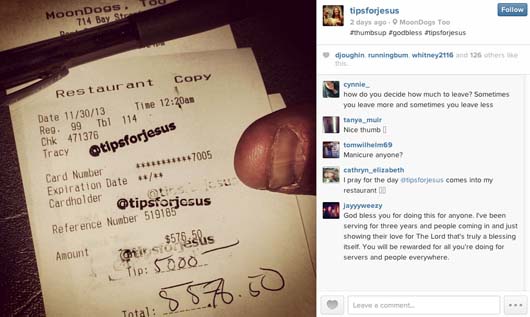 MoonDogs, Too
714 Bay Street
Restaurant Copy
Date 11/30/13 Time 12:20am
Reg. 99 Tbl 114
Chk 471376
Tracy @tipsforjesus
Card Number **********7005
Expiration Date **/**
Cardholder @tipsforjesus
Reference Number 519185
$576.50
Amount @tipsforjesus
Tip: 5,000
Total: 5576.50
tipsforjesus
Follow
2 days ago · MoonDogs Too
#thumbsup #godbless #tipsforjesus
djoughin, runningbum, whitney2116 and 126 others like this.
cynnie_
how do you decide how much to leave? Sometimes
you leave more and sometimes you leave less
tanya_muir
Nice thumb
tomwilhelm69
Manicure anyone?
cathryn_elizabeth
I pray for the day @tipsforjesus comes into my
restaurant
jayyyweezy
God bless you for doing this for anyone. I've been
serving for three years and people coming in and just
showing their love for The Lord that's truly a blessing
itself. You will be rewarded for all you're doing for
servers and people everywhere.
Leave a comment...